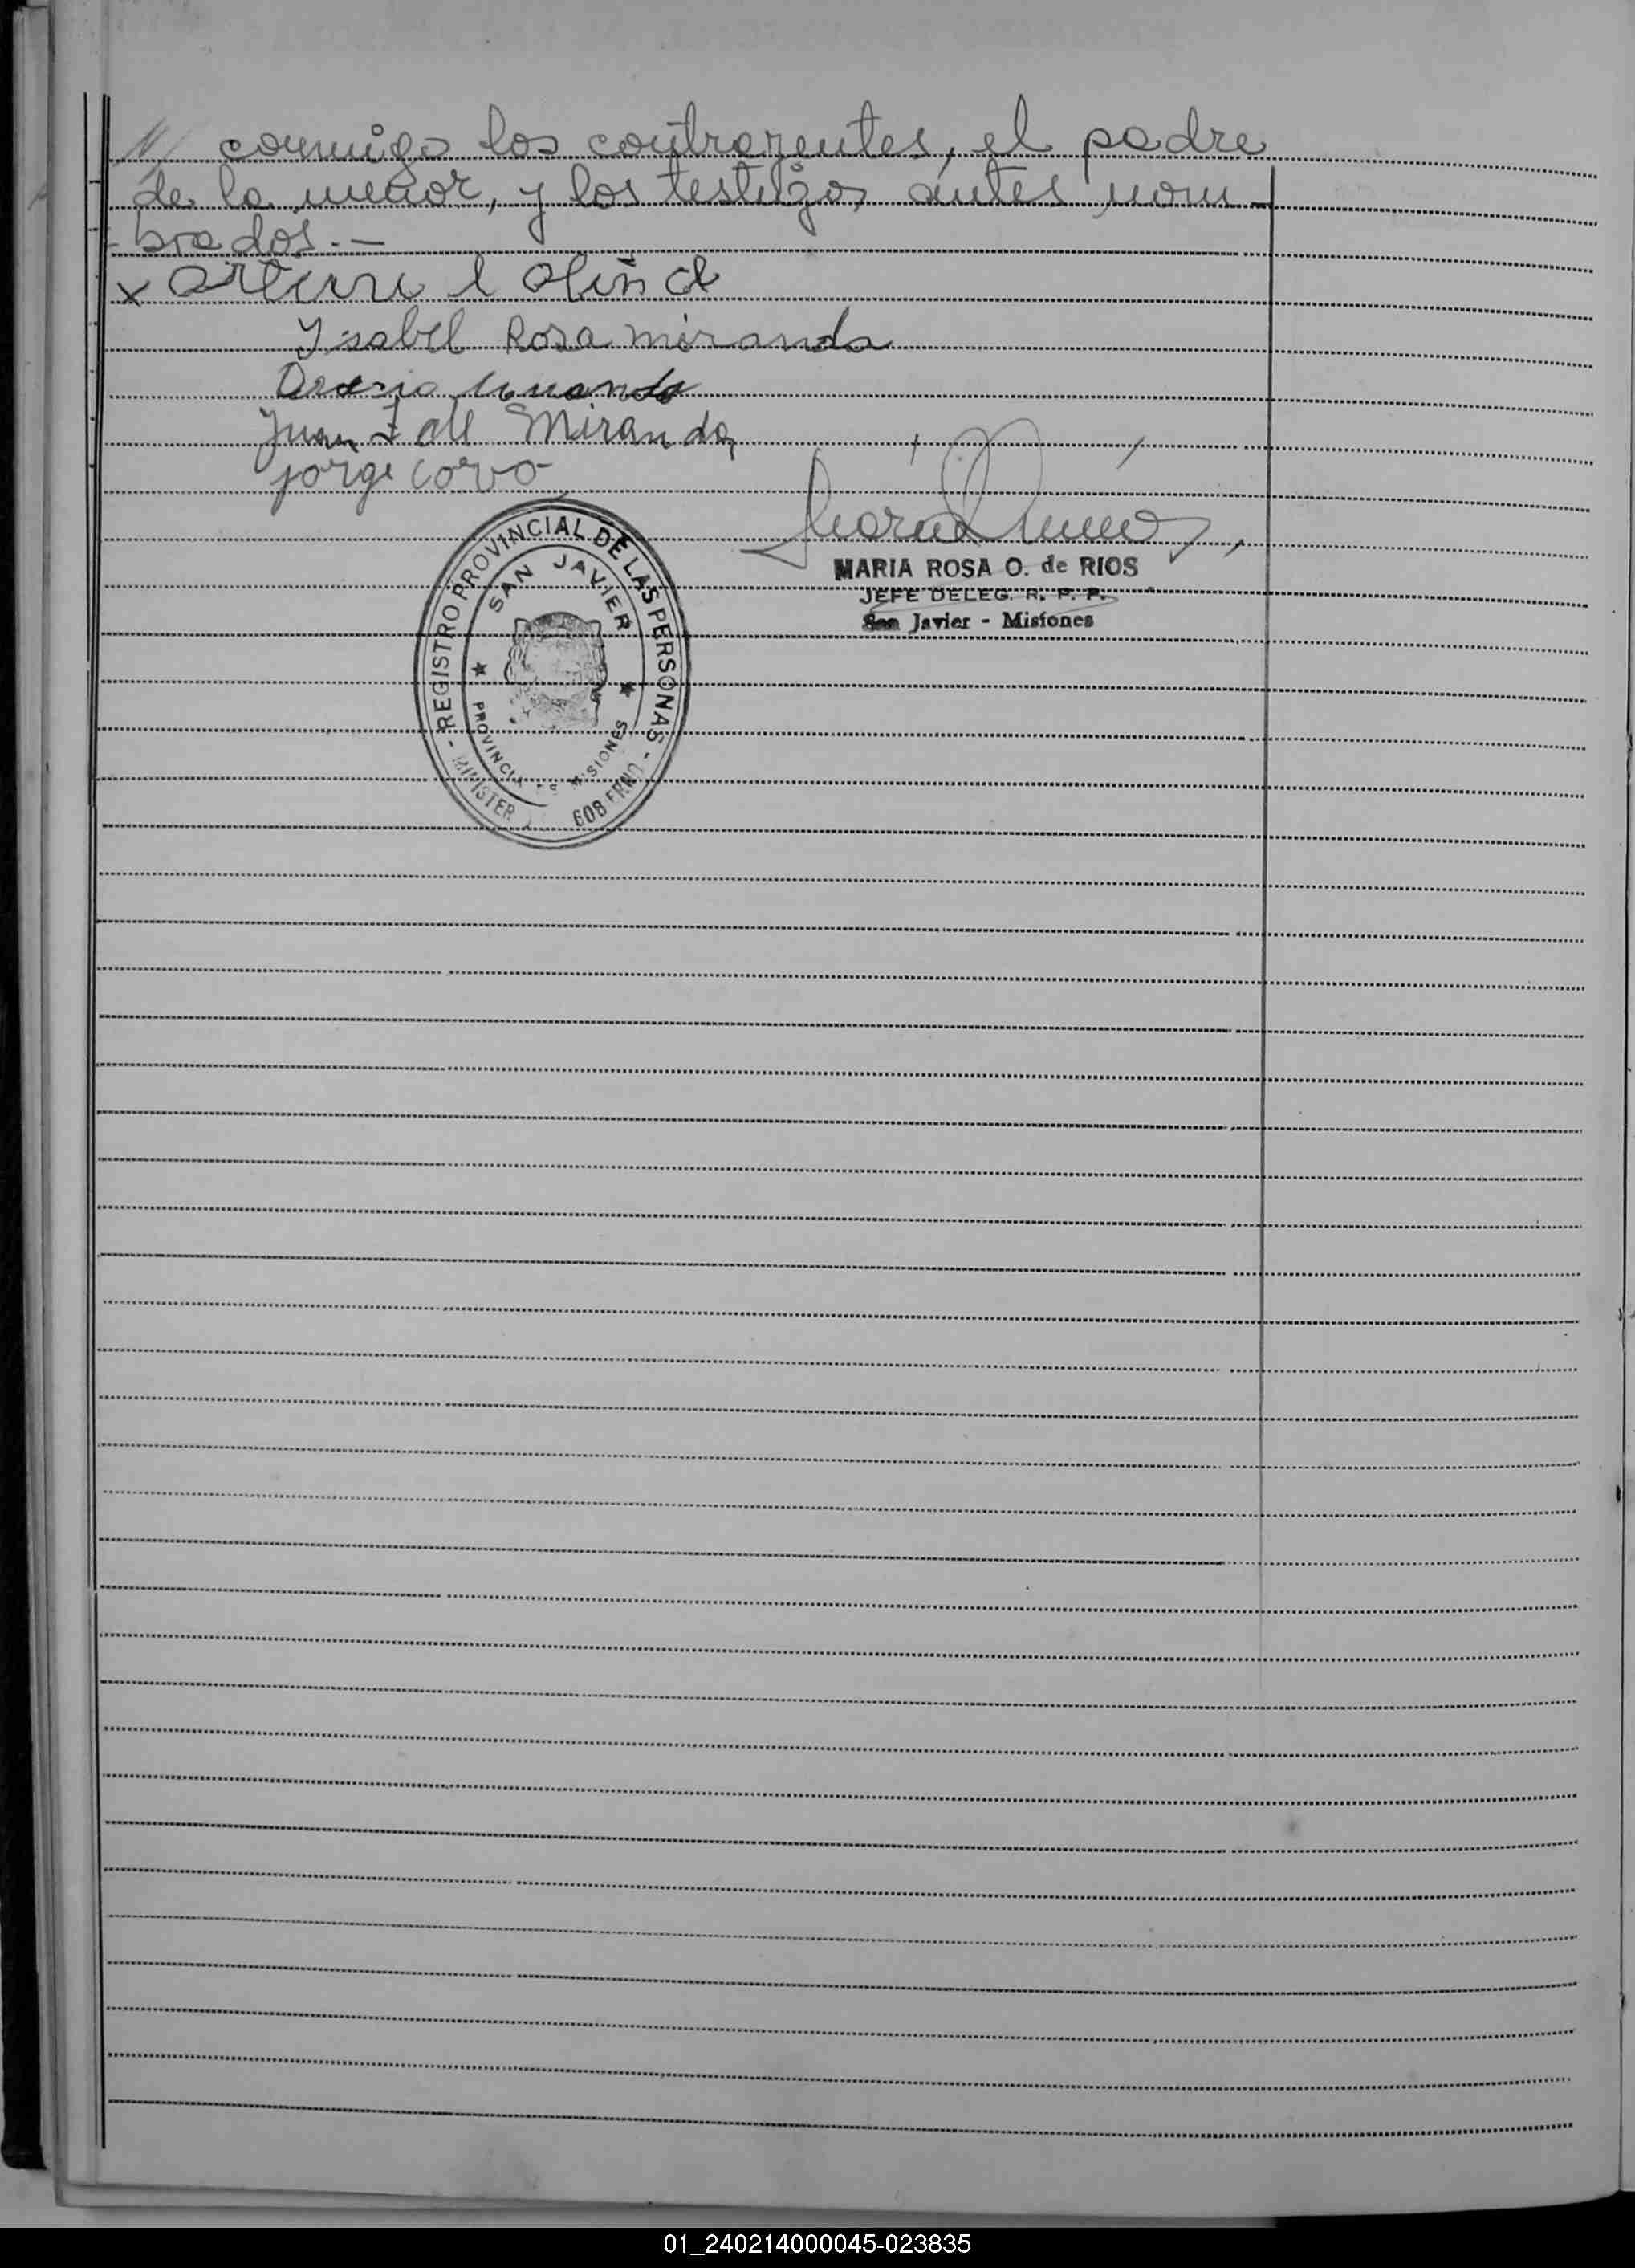 // conmigo los contrayentes, el padre
de la menor, y los testigos antes nom-
brados.-
x Arturo l Olind
Ysabel Rosa miranda
Juan Miranda
jorge Corvo
MARIA ROSA O. de RIOS
JEFE DELEG. R. P. P.
San Javier - Misiones
- REGISTRO PROVINCIAL DE LAS PERSONAS -
SAN JAVIER
PROVINCIA MISIONES
01_240214000045-023835